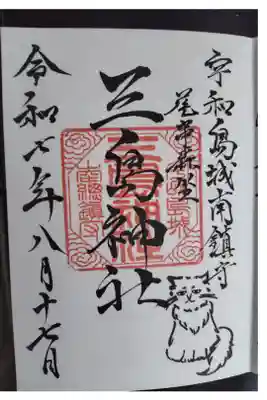 宇和島城南鎮守
三島神社
令和七年八月十七日
三島神社